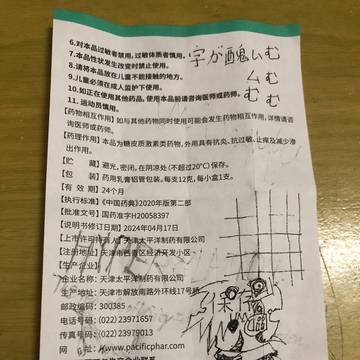 6.对本品过敏者禁用，过敏体质者慎用。
7.本品性状发生改变时禁止使用。
8.请将本品放在儿童不能接触的地方。
9.儿童必须在成人监护下使用。
10.如正在使用其他药品，使用本品前请咨询医师或药师。
11.运动员慎用。
字が醜いむ
む
む む
【药物相互作用】如与其他药物同时使用可能会发生药物相互作用，详情请咨询医师或药师。
【药理作用】本品为糖皮质激素类药物，外用具有抗炎、抗过敏、止痒及减少渗出作用。
【贮 藏】避光，密闭，在阴凉处（不超过20℃）保存。
【包 装】药用乳膏铝管包装。每支12克，每小盒1支。
【有 效 期】24个月
【执行标准】《中国药典》2020年版第二部
【批准文号】国药准字H20058397
【说明书修订日期】2024年04月17日
【上市许可持有人】天津太平洋制药有限公司
【注册地址】天津市西青区经济开发小区
【生产企业】
企业名称：天津太平洋制药有限公司
生产地址：天津市解放南路外环线17号桥
邮政编码：300385
电话号码：(022)23971657
传真号码：(022)23979013
网 址：www.pacificphar.com